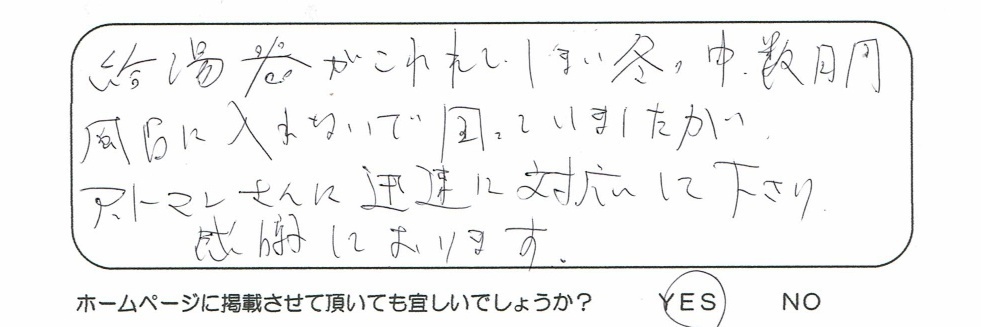 給湯器がこわれてしまい冬の中、数日間
風呂に入れないで困っていましたが、
アトマンさんに迅速に対応して下さり
感謝しております。
ホームページに掲載させて頂いても宜しいでしょうか? YES NO